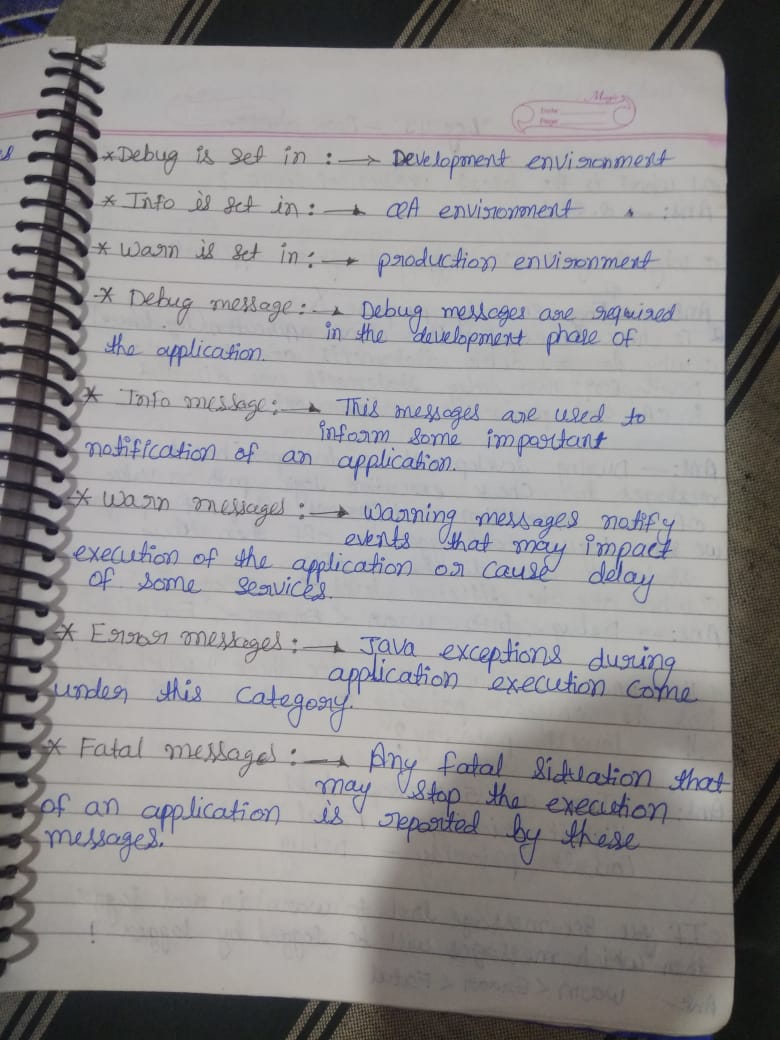 Magic
Date
Page
* Debug is set in :→ Development environment
* Info is set in :→ QA environment
* Warn is set in :→ production environment
* Debug message :→ Debug messages are required
in the development phase of
the application.
* Info message :→ This messages are used to
inform some important
notification of an application.
* Warn messages :→ Warning messages notify
events that may impact
execution of the application or cause delay
of some services.
* Error messages :→ Java exceptions during
application execution come
under this category.
* Fatal messages :→ Any fatal situation that
may stop the execution
of an application is reported by these
messages.